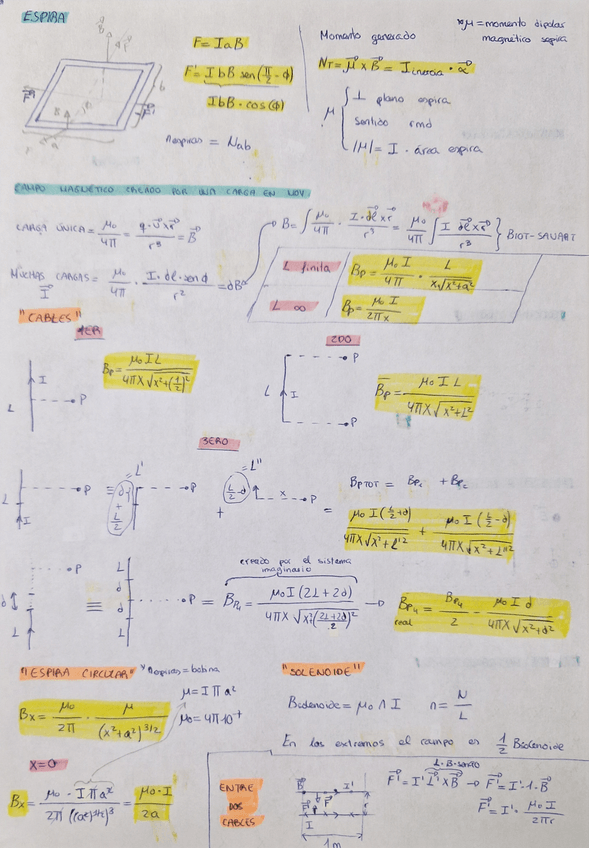 ESPIRA
F = I a B
F' = I b B sen(π/2 - φ)
I b B · cos(φ)
n espiras = N ab
Momento generado
*μ = momento dipolar
magnético espira
N_T = μ⃗ x B⃗ = I inercia · α⃗
μ
⊥ plano espira
sentido rmd
|μ| = I · área espira
CAMPO MAGNÉTICO CREADO POR UNA CARGA EN MOV
CARGA ÚNICA = μ₀/4π · q · v⃗ x r⃗ / r³ = B⃗
B = ∫ μ₀/4π · I · dl⃗ x r⃗ / r³ = μ₀/4π ∫ I dl⃗ x r⃗ / r³ } BIOT-SAVART
MUCHAS CARGAS = μ₀/4π · I · dl · sen φ / r² = dB
I⃗
L finita
Bp = μ₀ I / 4π · L / x√(x²+a²)
L ∞
Bp = μ₀ I / 2πx
"CABLES"
1ER
Bp = μ₀ I L / 4πx√(x²+(L/2)²)
L
I
P
2DO
P
L
I
P
Bp = μ₀ I L / 4πx√(x²+L²)
3ERO
L
I
P
≡
d + L/2
= L'
P
+
L/2 - d
= L''
x
P
=
Bp TOT = Bp₁ + Bp₂
μ₀ I (L/2 + d) / 4πx√(x²+L'²) + μ₀ I (L/2 - d) / 4πx√(x²+L''²)
creado por el sistema
imaginario
P
d
L
≡
L
d
d
L
P
= Bp₄ = μ₀ I (2L+2d) / 4πx√(x²+((2L+2d)/2)²) →
Bp₄ real = Bp₄/2 - μ₀ I d / 4πx√(x²+d²)
"ESPIRA CIRCULAR" * n espiras = bobina
μ = I π a²
Bx = μ₀/2π · μ/(x²+a²)^3/2
μ₀ = 4π10⁻⁷
x = 0
Bx = μ₀ · I π a² / 2π((a²)^1/2)³ = μ₀ · I / 2a
"SOLENOIDE"
Bsolenoide = μ₀ n I n = N/L
En los extremos el campo es 1/2 Bsolenoide
ENTRE
DOS
CABLES
B⃗
I'
F⃗
I
r
1m
L · B · sen90
F⃗' = I' L⃗' x B⃗ → F⃗' = I' · 1 · B⃗
F⃗' = I' · μ₀ I / 2πr